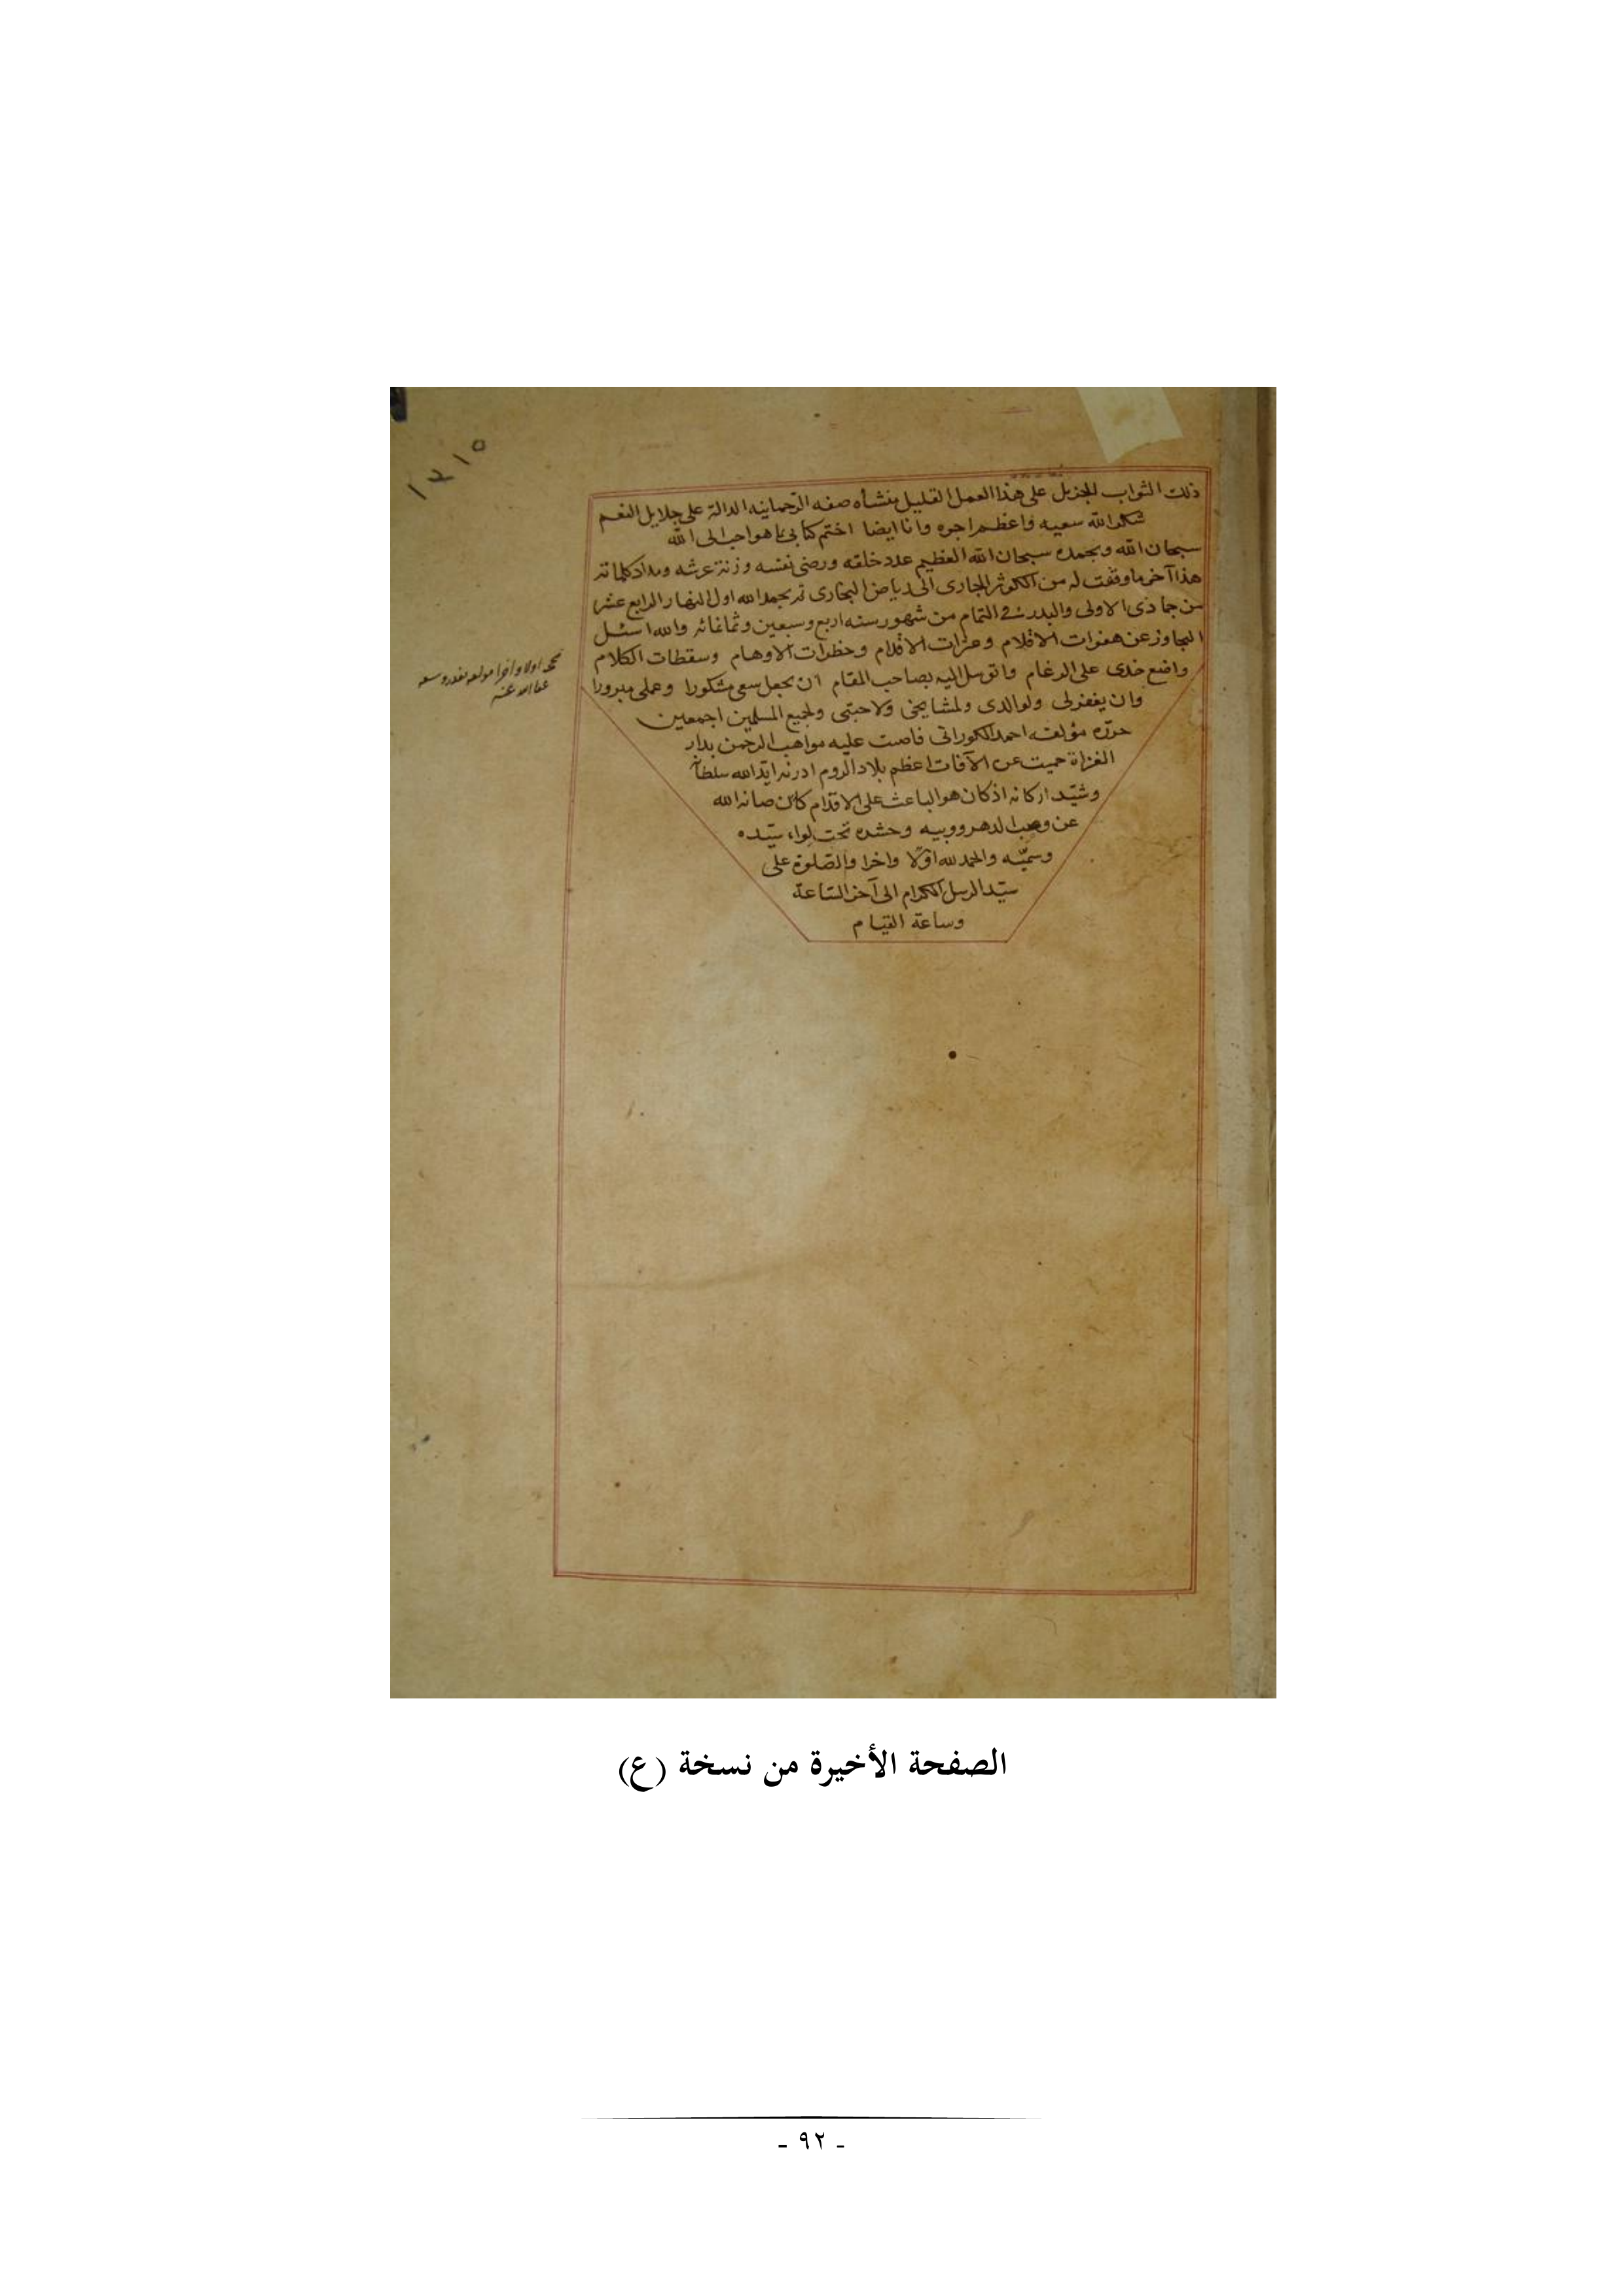 ١٢١٥
ذلك الثواب الجزيل على هذا العمل القليل بنشأه صفه الرحمانيه الدالة على جلايل النعم
شكر الله سعيه واعظم اجره وانا ايضا اختم كتابى بما هو احب الى الله
سبحان الله وبحمده سبحان الله العظيم عدد خلقه ورضى نفسه وزنة عرشه ومداد كلماته
هذا آخر ما وفقت له من الكوثر الجارى الى رياض البخارى تم بحمد الله اول النهار الرابع عشر
من جماذى الاولى والبدر فى التمام من شهور سنه اربع وسبعين وثمانمائه والله اسئل
التجاوز عن هفوات الاقلام وعثرات الاقدام وخطرات الاوهام وسقطات الكلام
واضع خدى على الرغام واتوسل اليه بصاحب المقام ان يجعل سعى مشكورا وعملى مبرورا
وان يغفر لى ولوالدى ولمشايخى ولاحبتى ولجميع المسلمين اجمعين
حرّره مؤلفه احمد الكورانى فاضت عليه مواهب الرحمن بدار
الغزاة حميت عن الآفات اعظم بلاد الروم ادرنه ايّد الله سلطانها
وشيّد اركانه اذ كان هو الباعث على الاقدام كان صانه الله
عن الدهر وحشره تحت لواء سيّده
وسميّه والحمد لله اوّلا واخرا والصّلوة على
سيّد الرسل الكرام الى آخر السّاعة
وساعة القيام
عفا الله عنه
الصفحة الأخيرة من نسخة (ع)
- ٩٢ -